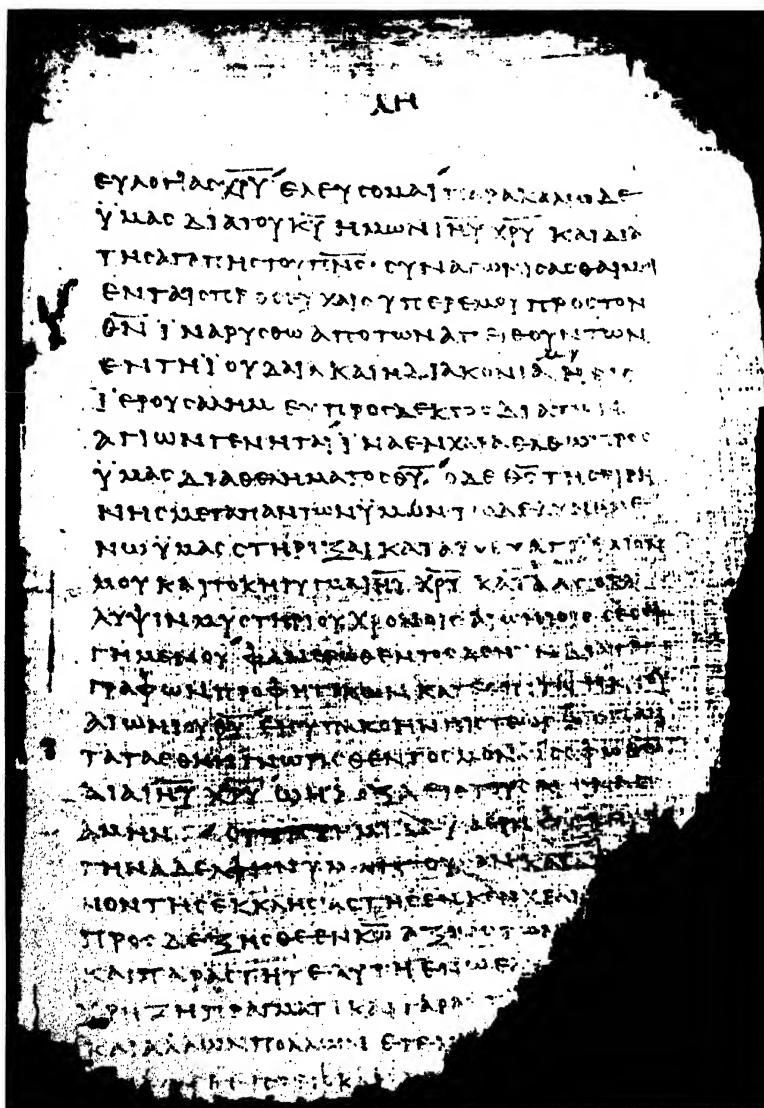 ΛΗ
ΕΥΛΟΓΙΑϹ Χ̅Ρ̅Υ̅ ΕΛΕΥϹΟΜΑΙ ΠΑΡΑΚΑΛΩ ΔΕ
ΫΜΑϹ ΔΙΑ ΤΟΥ Κ̅Υ̅ ΗΜΩΝ Ι̅Η̅Υ̅ Χ̅Ρ̅Υ̅ ΚΑΙ ΔΙΑ
ΤΗϹ ΑΓΑΠΗϹ ΤΟΥ Π̅Ν̅Ϲ̅ ϹΥΝΑΓΩΝΙϹΑϹΘΑΙ ΜΟΙ
ΕΝ ΤΑΙϹ ΠΡΟϹΕΥΧΑΙϹ ΥΠΕΡ ΕΜΟΥ ΠΡΟϹ ΤΟΝ
Θ̅Ν̅ ΪΝΑ ΡΥϹΘΩ ΑΠΟ ΤΩΝ ΑΠΕΙΘΟΥΝΤΩΝ
ΕΝ ΤΗ ΪΟΥΔΑΙΑ ΚΑΙ Η ΔΙΑΚΟΝΙΑ ΜΟΥ Η ΕΙϹ
ΪΕΡΟΥϹΑΛΗΜ ΕΥΠΡΟϹΔΕΚΤΟϹ ΔΙΑ ΤΩΝ
ΑΓΙΩΝ ΓΕΝΗΤΑΙ ΪΝΑ ΕΝ ΧΑΡΑ ΕΛΘΩ ΠΡΟϹ
ΫΜΑϹ ΔΙΑ ΘΕΛΗΜΑΤΟϹ Θ̅Υ̅ Ο ΔΕ Θ̅Ϲ̅ ΤΗϹ ΕΙΡΗ
ΝΗϹ ΜΕΤΑ ΠΑΝΤΩΝ ΫΜΩΝ ΤΩ ΔΕ ΔΥΝΑΜΕ
ΝΩ ΫΜΑϹ ϹΤΗΡΙΞΑΙ ΚΑΤΑ ΤΟ ΕΥΑΓΓΕΛΙΟΝ
ΜΟΥ ΚΑΙ ΤΟ ΚΗΡΥΓΜΑ Ι̅Η̅Υ̅ Χ̅Ρ̅Υ̅ ΚΑΤΑ ΑΠΟΚΑ
ΛΥΨΙΝ ΜΥϹΤΗΡΙΟΥ ΧΡΟΝΟΙϹ ΑΙΩΝΙΟΙϹ ϹΕϹΕΙ
ΓΗΜΕΝΟΥ ΦΑΝΕΡΩΘΕΝΤΟϹ ΔΕ ΝΥΝ ΔΙΑ ΤΕ
ΓΡΑΦΩΝ ΠΡΟΦΗΤΙΚΩΝ ΚΑΤ ΕΠΙΤΑΓΗΝ ΤΟΥ
ΑΙΩΝΙΟΥ Θ̅Υ̅ ΕΙϹ ΥΠΑΚΟΗΝ ΠΙϹΤΕΩϹ ΕΙϹ ΠΑΝ
ΤΑ ΤΑ ΕΘΝΗ ΓΝΩΡΙϹΘΕΝΤΟϹ ΜΟΝΩ ϹΟΦΩ Θ̅Ω̅
ΔΙΑ Ι̅Η̅Υ̅ Χ̅Ρ̅Υ̅ Ω Η ΔΟΞΑ ΕΙϹ ΤΟΥϹ ΑΙΩΝΑϹ
ΑΜΗΝ
ΤΗΝ ΑΔΕΛΦΗΝ ΥΜΩΝ ΟΥϹΑΝ ΚΑΙ
ΚΟΝΟΝ ΤΗϹ ΕΚΚΛΗϹΙΑϹ ΤΗϹ ΕΝ ΚΕΝΧΡΕΑΙ
ΠΡΟϹΔΕΞΗϹΘΕ ΕΝ Κ̅Ω̅ ΑΞΙΩϹ ΤΩΝ
ΚΑΙ ΠΑΡΑϹΤΗΤΕ ΑΥΤΗ ΕΝ Ω
ΧΡΗΖΗ ΠΡΑΓΜΑΤΙ ΚΑΙ ΓΑΡ
ΚΑΙ ΑΛΛΩΝ ΠΟΛΛΩΝ